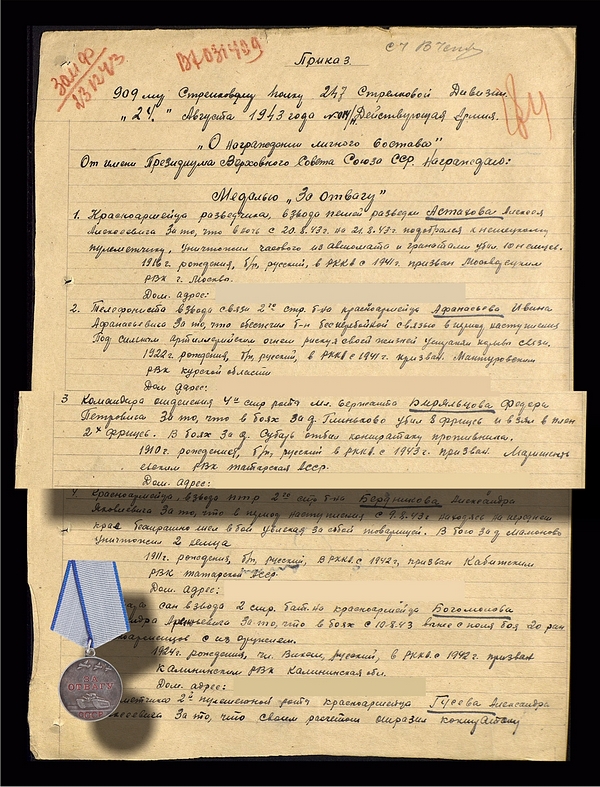 Приказ
909 му Стрелковому полку 247 Стрелковой Дивизии
"24." Августа 1943 года Действующая Армия.
"О награждении личного состава"
От имени Президиума Верховного Совета Союза ССР, Награждаю:
Медалью "За отвагу"
1. Красноармейца разведчика, взвода пешей разведки Астахова Алексея
Алексеевича За то, что в ночь с 20.8.43г на 21.8.43г подобрался к немецкому
пулеметчику, уничтожил часового из автомата и гранатами убил 10 немцев.
1916 г. рождения, б/п, русский, в РККА с 1941г. призван Москворецким
РВК г. Москва.
Дом. адрес:
2. Телефониста взвода связи 2го стр. б-на красноармейца Афанасьева Ивана
Афанасьевича За то, что обеспечил б-н бесперебойной связью в период наступления
Под сильным артиллерийским огнем рискуя своей жизнью устранял порывы связи.
1922г. рождения, б/п, русский, в РККА с 1941г. призван. Мантуровским
РВК Курской области
Дом адрес:
3 Командира отделения 4й стр роты мл. сержанта Биряльцова Федора
Петровича За то, что в боях за д. Глиньково убил 8 фрицев и взял в плен
2х фрицев. В боях за д. Субочь отбил контратаку противника.
1910г. рождения, б/п, русский в РККА с 1943г. призван.
РВК Татарская АССР.
Дом. адрес:
4. Красноармейца, взвода птр 2го стр б-на Бердникова Александра
Яковлевича За то, что в период наступления с 9.8.43г находясь на переднем
крае бесстрашно шел в бой увлекая за собой товарищей. В бою за д. Мамоново
уничтожил 2 немца
1911г. рождения, б/п, русский, в РККА с 1942г, призван
РВК Татарской АССР
Дом. адрес:
сан взвода 2 стр. бат-на красноармейца Богомолова
За то, что в боях с 10.8.43 вынес с поля боя 20 ран
с их оружием.
1924г. рождения, чл. ВЛКСМ, русский, в РККА с 1942г. призван
Калининским РВК Калининская обл.
Дом. адрес:
2й пулеметной роты красноармейца Гусева Александра
За то, что своим расчетом отразил контратаку
ЗА
ОТВАГУ
СССР